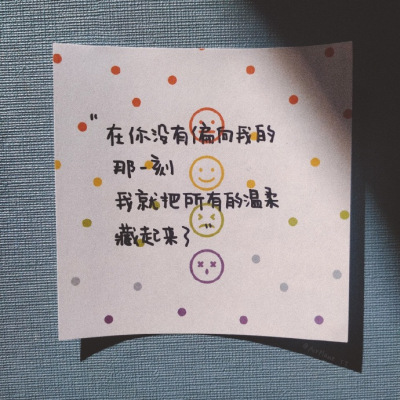 “在你没有偏向我的
那一刻
我就把所有的温柔
藏起来了”